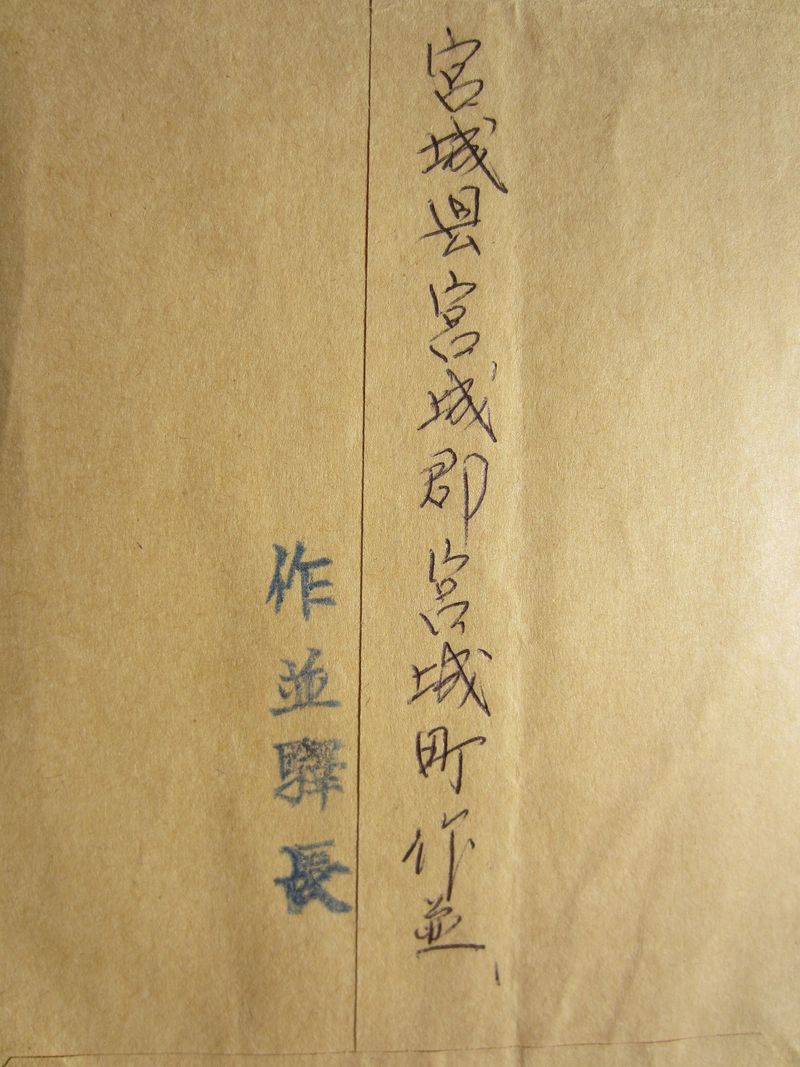 宮城県宮城郡宮城町作並
作並驛長